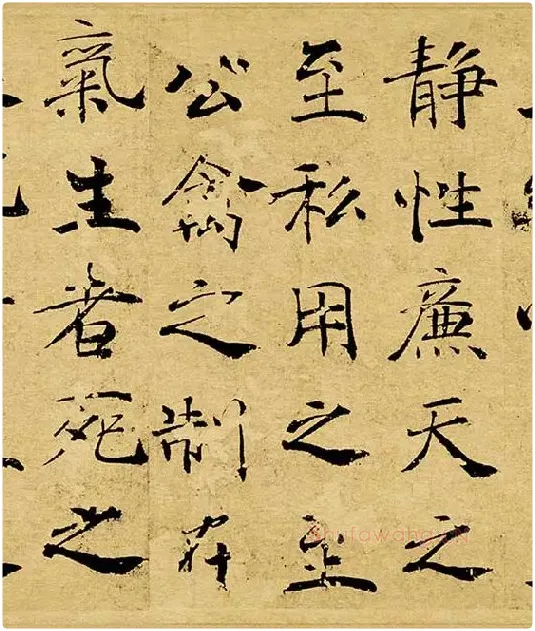 静性廉天之
至私用之至
公禽之制在
氣生者死之
shufawang.CN